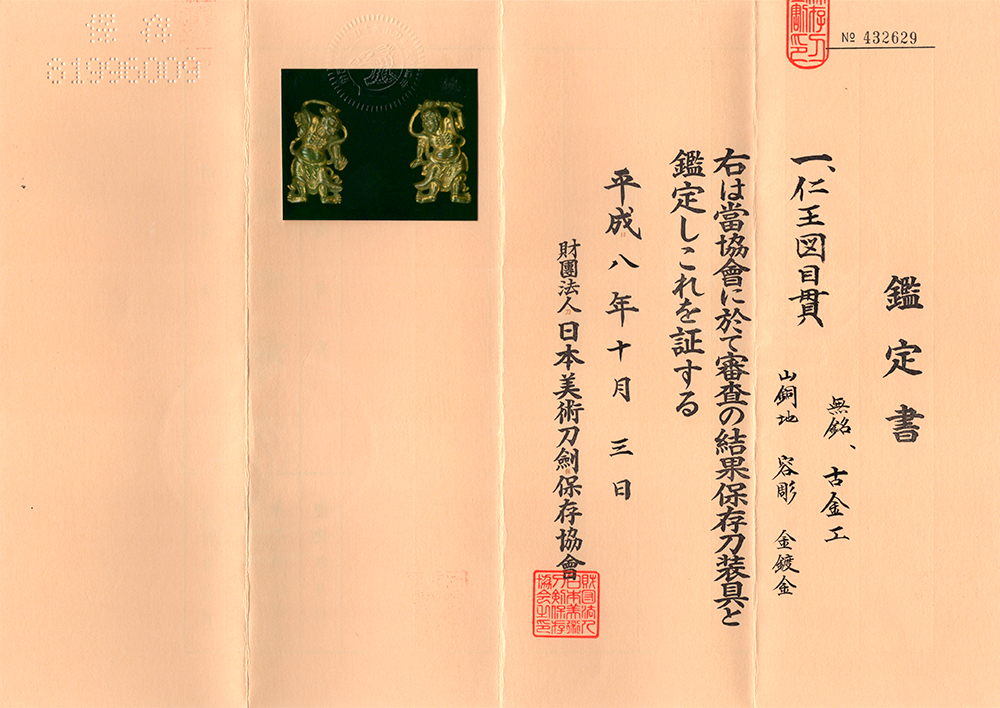 № 432629
鑑定書
一、仁王図目貫
無銘、古金工
山銅地 容彫 金鍍金
右は當協會に於て審査の結果保存刀装具と
鑑定しこれを証する
平成八年十月三日
財團法人日本美術刀劍保存協會
財団法人
日本美術
刀剣保存
協会之印
保存
81996009